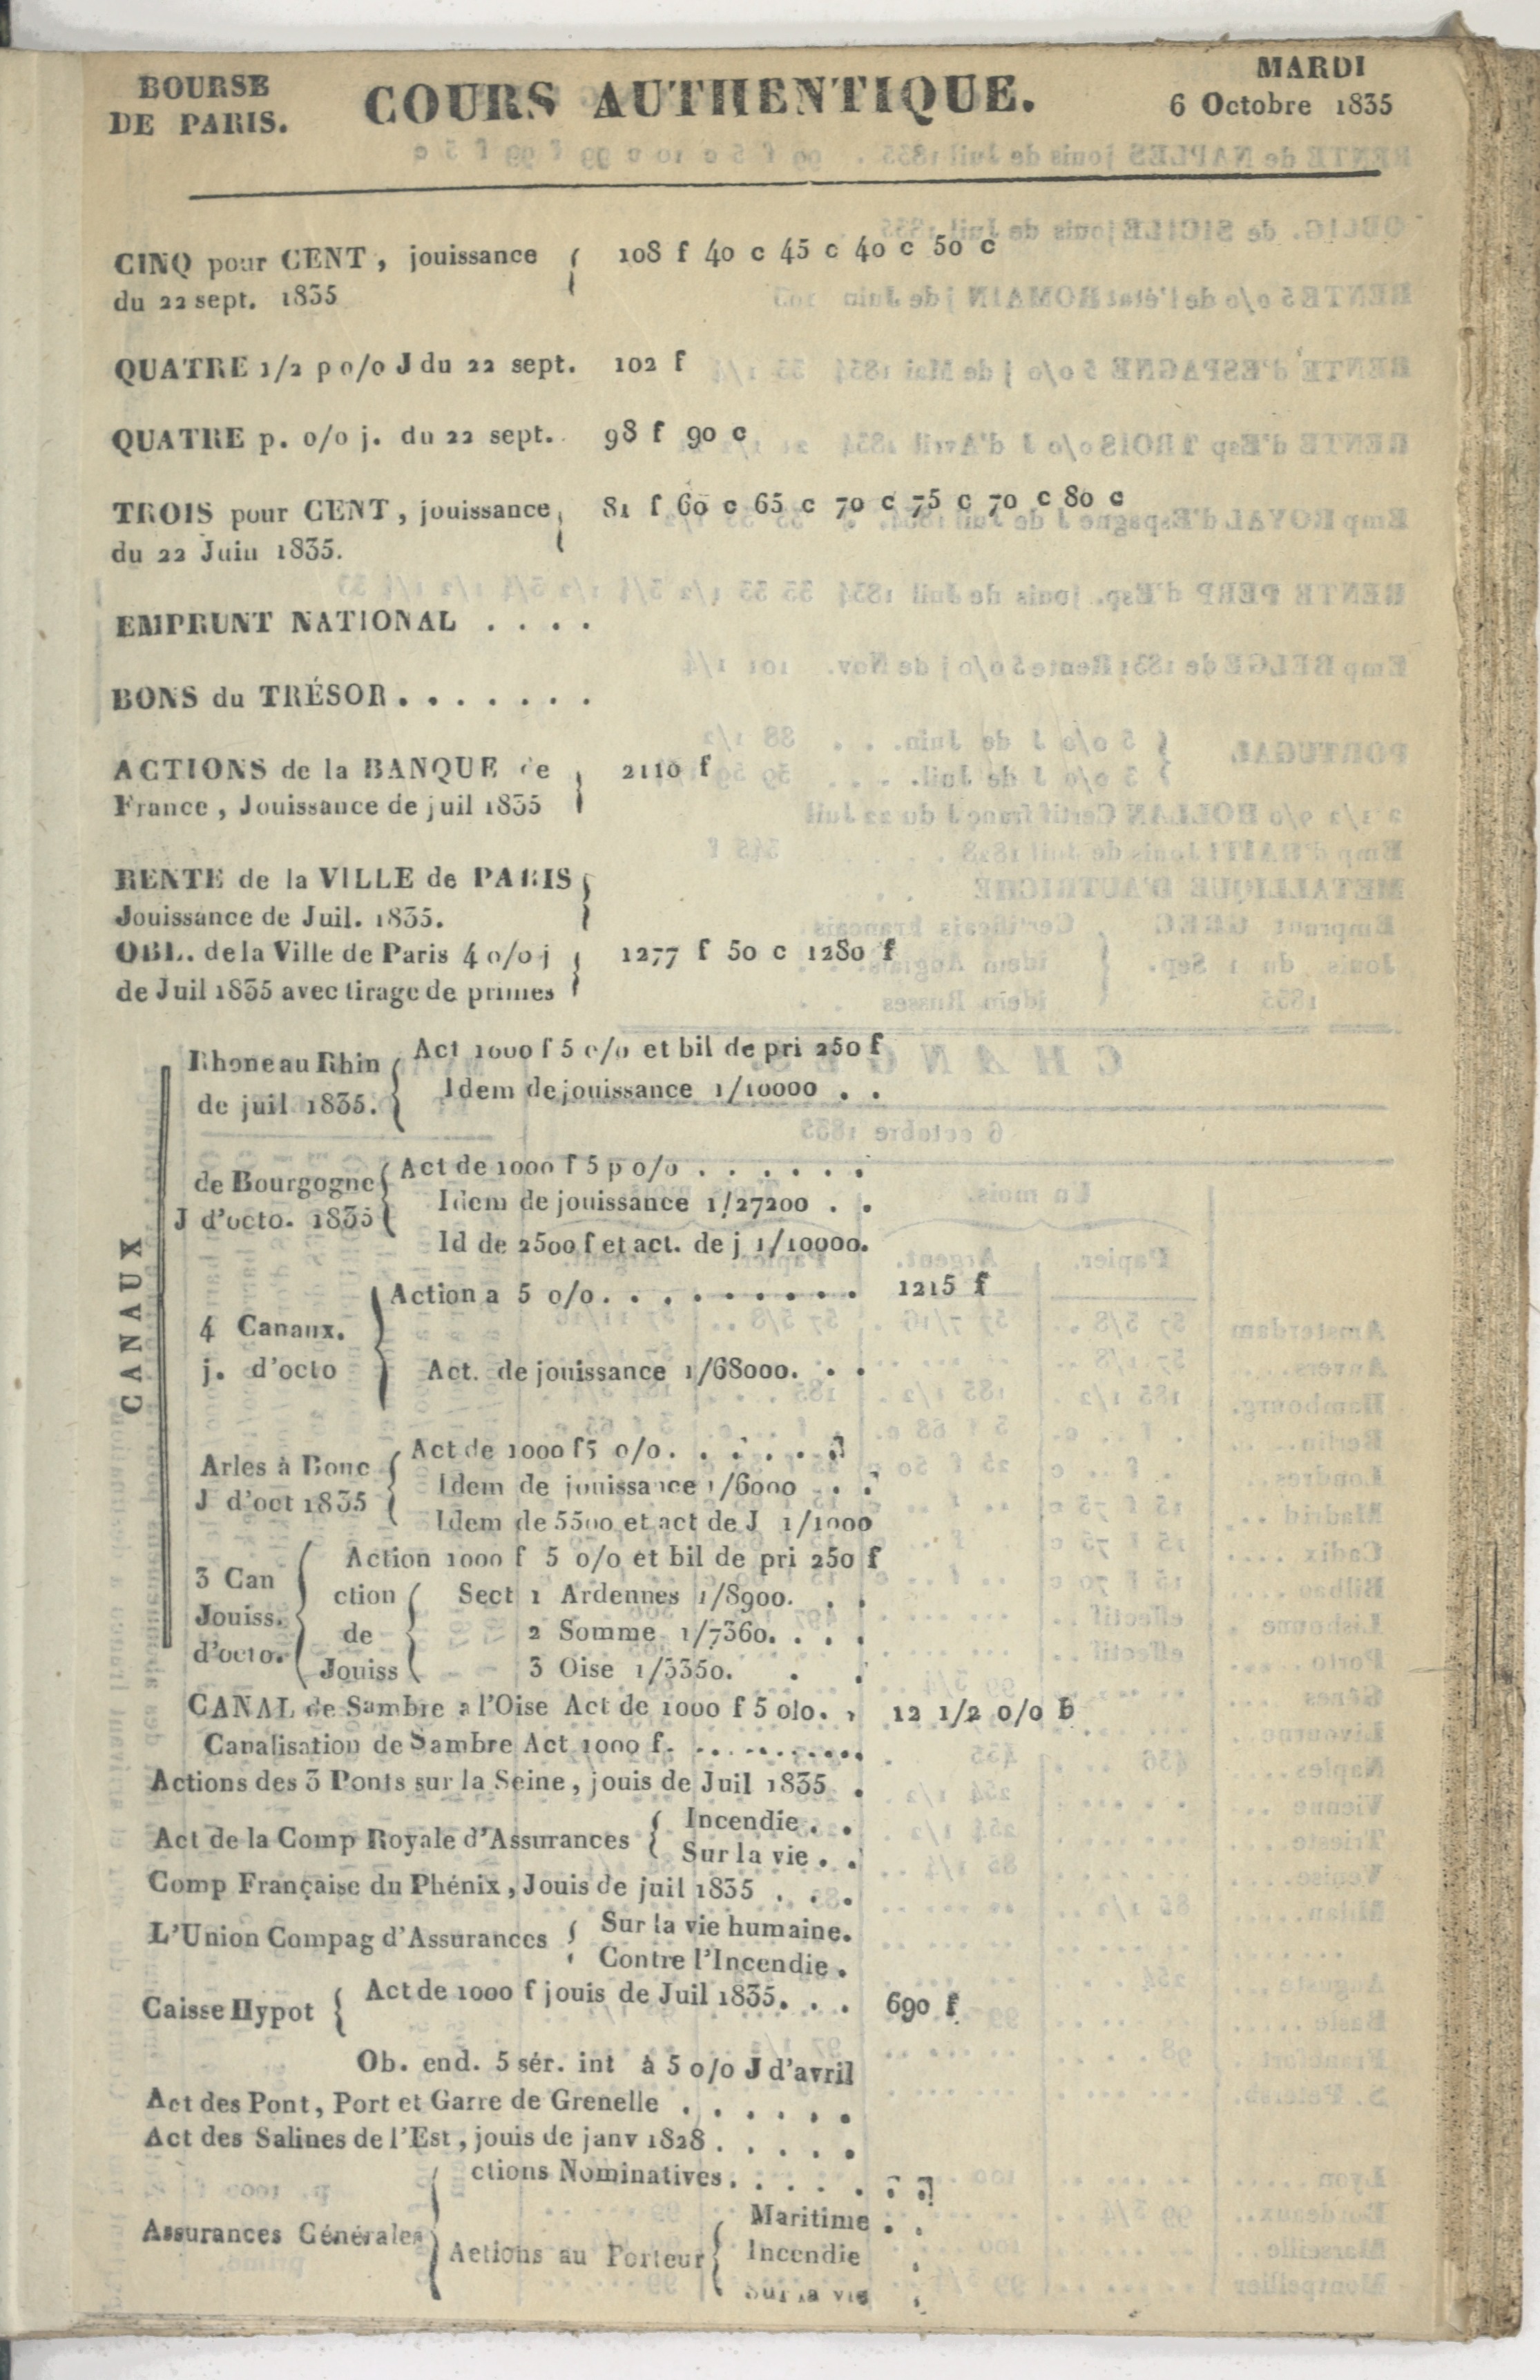 BOURSE
DE PARIS.
COURS AUTHENTIQUE.
MARDI
6 Octobre 1835
CINQ pour CENT, jouissance { 108 f 40 c 45 c 40 c 50 c
du 22 sept. 1835
QUATRE 1/2 p o/o J du 22 sept. 102 f
QUATRE p. o/o j. du 22 sept. 98 f 90 c
TROIS pour CENT, jouissance { 81 f 60 c 65 c 70 c 75 c 70 c 80 c
du 22 Juin 1835.
EMPRUNT NATIONAL . . . .
BONS du TRÉSOR . . . . . . .
ACTIONS de la BANQUE de } 2110 f
France, Jouissance de juil 1835
RENTE de la VILLE de PARIS }
Jouissance de Juil. 1835.
OBL. de la Ville de Paris 4 o/o j } 1277 f 50 c 1280 f
de Juil 1835 avec tirage de primes
CANAUX
Rhone au Rhin { Act 1000 f 5 o/o et bil de pri 250 f
de juil 1835. { Idem de jouissance 1/10000 . .
de Bourgogne { Act de 1000 f 5 p o/o . . . . . .
J d'octo. 1835 { Idem de jouissance 1/27200 . .
Id de 2500 f et act. de j 1/10000.
Action a 5 o/o. . . . . . . . . . 1215 f
4 Canaux.
j. d'octo
Act. de jouissance 1/68000. . .
Arles à Bouc { Act de 1000 f5 o/o. . . . . .
J d'oct 1835 { Idem de jouissance 1/6000 . .
Idem de 5500 et act de J 1/1000
3 Can
Jouiss.
d'octo.
Action 1000 f 5 o/o et bil de pri 250 f
ction
de
Jouiss
Sect 1 Ardennes 1/8900. . .
2 Somme 1/7360. . . .
3 Oise 1/3350. . .
CANAL de Sambre a l'Oise Act de 1000 f 5 olo. , 12 1/2 o/o b
Canalisation de Sambre Act 1000 f. . . . . . . . . . .
Actions des 3 Ponts sur la Seine, jouis de Juil 1835 .
Act de la Comp Royale d'Assurances { Incendie . .
Sur la vie . .
Comp Française du Phénix, Jouis de juil 1835 . . .
L'Union Compag d'Assurances { Sur la vie humaine.
Contre l'Incendie .
Caisse Hypot { Act de 1000 f jouis de Juil 1835. . . 690 f
Ob. end. 5 sér. int à 5 o/o J d'avril
Act des Pont, Port et Garre de Grenelle . . . . . .
Act des Salines de l'Est, jouis de janv 1828 . . . . .
ctions Nominatives. . . . . .
Assurances Générales
Actions au Porteur { Maritime . .
Incendie .
Sur la vie .